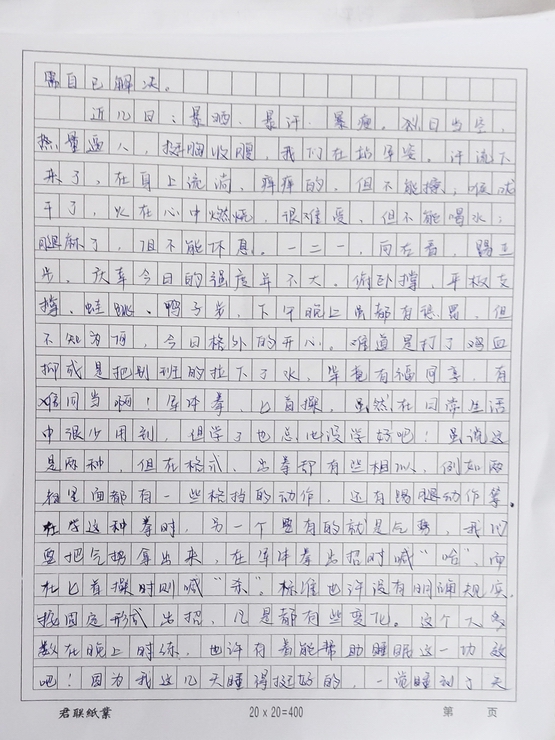 需自己解决。
近几日：暴晒、暴汗、暴瘦。烈日当空，
热量逼人，挺胸收腹，我们在站军姿。汗流下
来了，在身上流淌，痒痒的，但不能挠，喉咙
干了，火在心中燃烧，很难受，但不能喝水；
腿麻了，但不能休息。一二一，向左看，踢正
步。庆幸今日的强度并不大。俯卧撑，平板支
撑、蛙跳、鸭子步，下午晚上虽都有惩罚，但
不知为何，今日格外的开心。难道是打了鸡血
抑或是把别班的拉下了水，毕竟有福同享，有
难同当啊！军体拳，匕首操，虽然在日常生活
中很少用到，但学了也总比没学好吧！虽说这
是两种，但在格式、出拳却有些相似，例如两
种里面都有一些格挡的动作，还有踢腿动作等。
在学这种拳时，另一个要有的就是气势，我们
要把气势拿出来，在军体拳出招时喊“哈”，而
在匕首操时则喊“杀”。标准也许没有明确规定
按固定形式出招，几是都有些变化。这个大多
数在晚上时练，也许有着能帮助睡眠这一功效
吧！因为我这几天睡得挺好的，一觉睡到了天
君联纸业 20×20=400 第 页